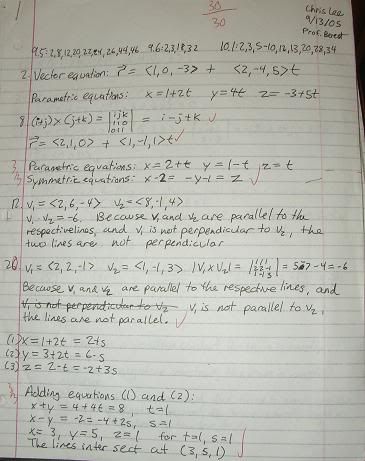 30
30
Chris Lee
9/13/05
Prof. Berest
9.5: 2,8,12,20,22,24,26,44,46 9.6: 2,3,18,32 10.1: 2,3,5-10,12,13,20,28,34
2. Vector equation: r = <1, 0, -3> + <2, -4, 5>t
Parametric equations: x=1+2t y=4t z=-3+5t
8. (i+j)×(j+k) = |ijk 110 011| = i-j+k ✓
r = <2,1,0> + <1,-1,1>t ✓
Parametric equations: x=2+t y=1-t z=t
Symmetric equations: x-2= -y-1= z ✓
12. v₁=<2,6,-4> v₂=<8,-1,4>
v₁·v₂=-6. Because v₁ and v₂ are parallel to the
respective lines, and v₁ is not perpendicular to v₂, the
two lines are not perpendicular
20. v₁=<2,2,-1> v₂=<1,-1,3> |v₁×v₂|= = -4=-6
Because v₁ and v₂ are parallel to the respective lines, and
v₁ is not perpendicular to v₂ v₁ is not parallel to v₂,
the lines are not parallel. ✓
(1) x=1+2t = 2+s
(2) y=3+2t = 6-s
(3) z=2-t = -2+3s
Adding equations (1) and (2):
x+y = 4+4t=8, t=1
x-y = -2=-4+2s, s=1
x=3, y=5, z=1 for t=1, s=1
The lines intersect at (3,5,1)